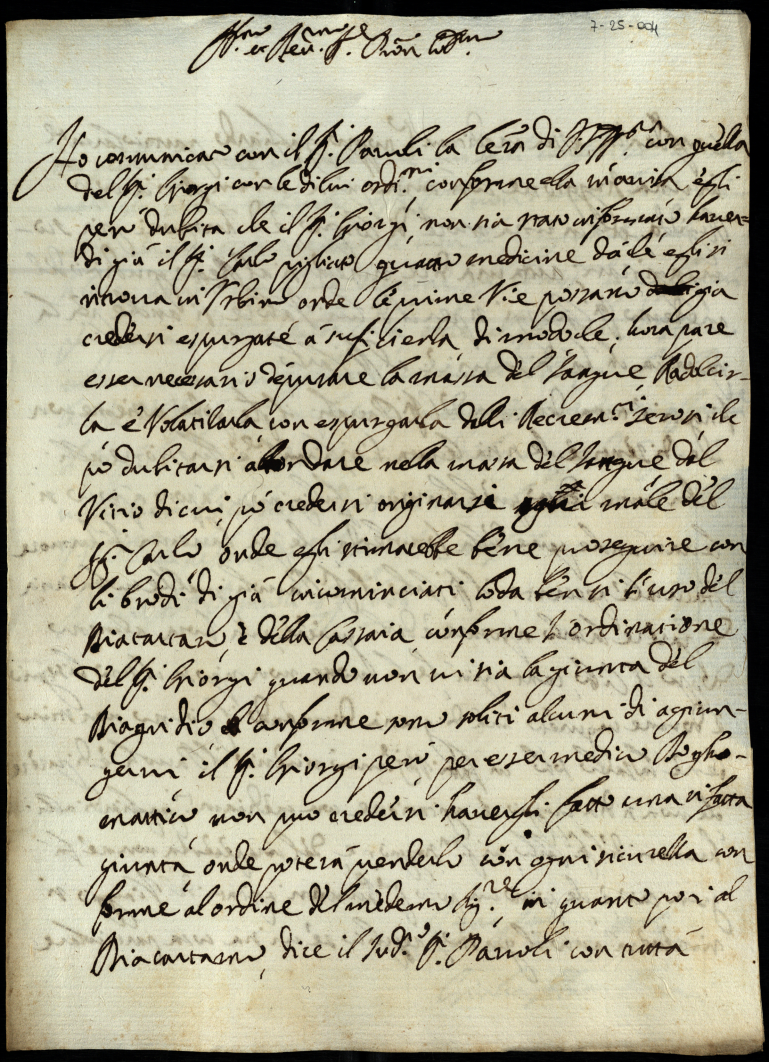 7-25-004
Ill.mo et Rev.mo S.re P.ron Col.mo
Ho comunicato con il S.r Paruoli la lettra di V.S. Ill.ma con quella
del S.r Giorgi con le di lui ordi.ni conforme ella m'avisa egli
però dubita che il S.r Giorgi non sia stato informato haver=
di già il S.r Carlo pigliato quatto medicine dache egli si
ritrova in Urbino onde le prime Vie possano di già
credersi espurgate à suficienza di modo che hora pare
esser necessario depurare la massa del sangue, Radolcir=
la è Volatilarla con espurgarla delli Recrem.ti serosi che
pò dubitarsi abondare nella massa del sangue dal
Vitio di cui pò credersi originarsi il male del
S.r Carlo, onde egli stimarebbe bene proseguire con
li brodi di già incominciati loda bensi l'uso del
Diacattaro, è della Cassia conforme l'ordinatione
del S.r Giorgi quando non vi sia la giunta del
Diagridio conforme sono soliti alcuni di agiun=
gervi il S.r Giorgi però per esser medico Dogho=
mattico non può credersi haverli fatto una si fatta
giunta onde poterà prenderlo con ogni sicurella con
forme al ordine del medemo Sig.re in quanto poi al
Diacattaro, dice il Sud.o S.r Paruoli con tutta